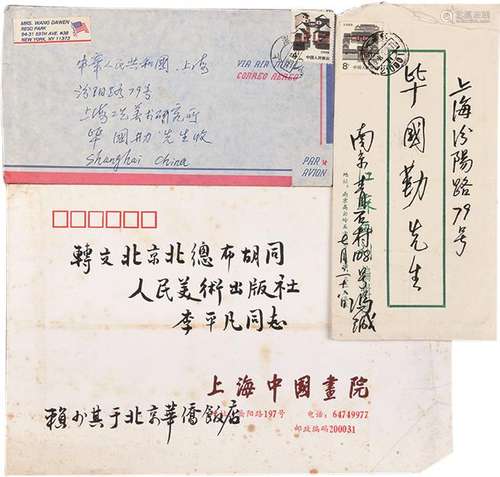 MRS. WANG DAWEN
REGO PARK
94-31 59TH AVE. #3B
NEW YORK, NY 11373
中華人民共和國.上海
汾阳路79号
上海工艺美术研究所
毕國勤先生收
Shanghai China
VIA AIR MAIL
CORREO AEREO
PAR AVION
上海汾陽路79号
毕國勤先生
南京青石村108号馮緘
轉交北京北總布胡同
人民美術出版社
李平凡同志
上海中國畫院
岳阳路197号 电话:64749977
邮政编码200031
賴少其于北京華僑飯店